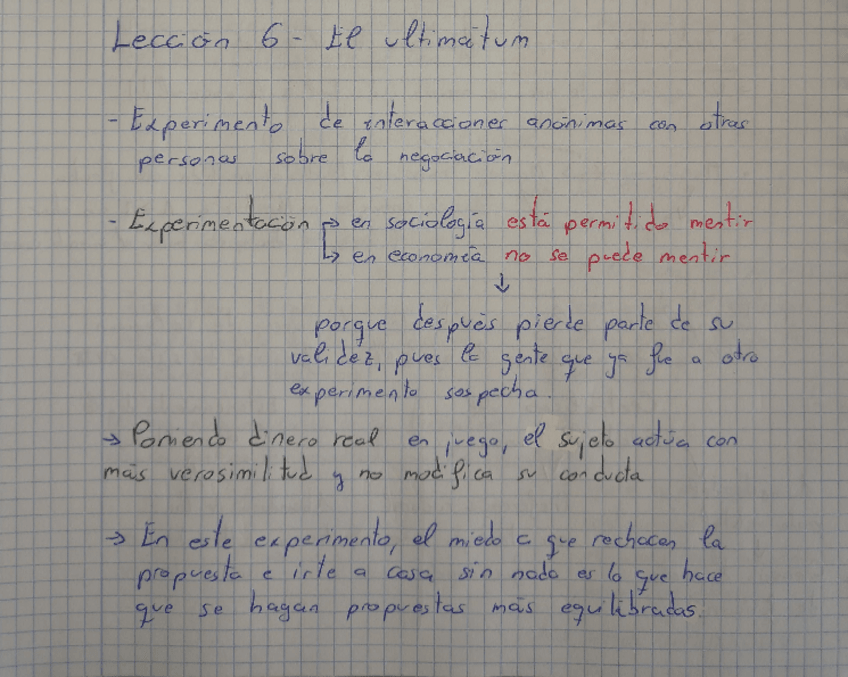 Lección 6 - El ultimátum
- Experimento de interacciones anónimas con otras
personas sobre la negociación
- Experimentación → en sociología está permitido mentir
↳ en economía no se puede mentir
↓
porque después pierde parte de su
validez, pues la gente que ya fue a otro
experimento sospecha.
→ Poniendo dinero real en juego, el sujeto actúa con
más verosimilitud y no modifica su conducta
→ En este experimento, el miedo a que rechacen la
propuesta e irte a casa sin nada es lo que hace
que se hagan propuestas más equilibradas.